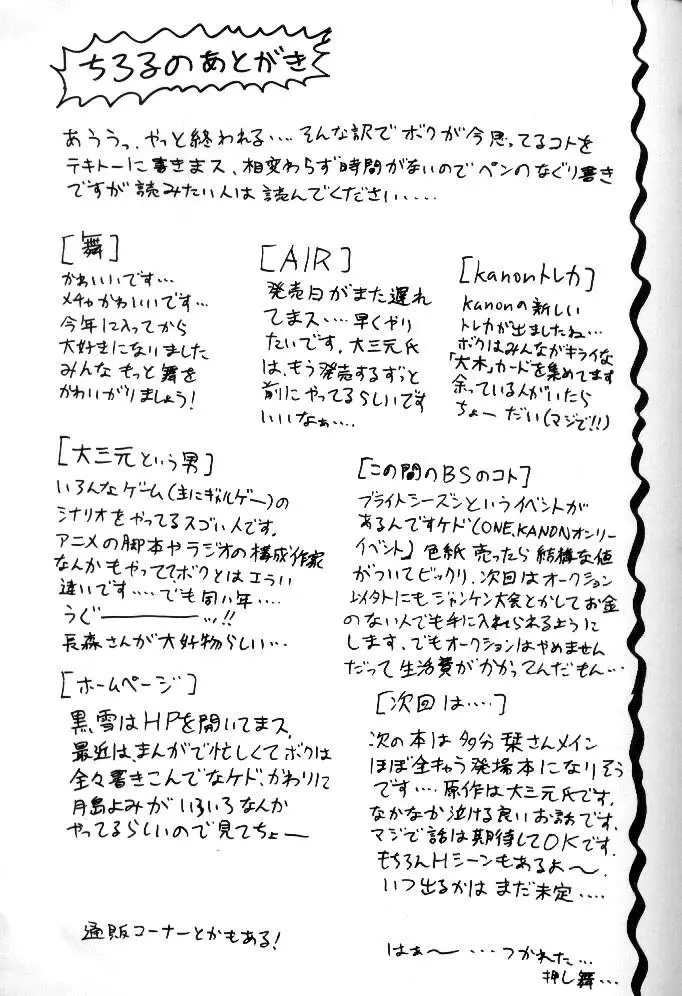 ちろ子のあとがき
あううっ、やっと終われる‥‥そんな訳でボクが今思ってるコトを
テキトーに書きまス、相変わらず時間がないのでペンのなぐり書き
ですが読みたい人は読んでください‥‥
[舞]
かわいいです…
メチャかわいいです…
今年に入ってから
大好きになりました
みんなもっと舞を
かわいがりましょう!
[AIR]
発売日がまた遅れ
てまス‥‥早くやり
たいです。大三元氏
は、もう発売するずっと
前にやってるらしいです
いいなぁ‥‥
[kanonトレカ]
kanonの新しい
トレカが出ましたね…
ボクはみんながキライな
「大木」カードを集めてます
余っている人がいたら
ちょーだい(マジで!!)
[大三元という男]
いろんなゲーム(主にギャルゲー)の
シナリオをやってるスゴい人です。
アニメの脚本やラジオの構成作家
なんかもやっててボクとはエラい
違いです‥‥でも同い年‥‥
うぐーーーッ!!
長森さんが大好物らしい…
[この間のBSのコト]
ブライトシーズンというイベントが
あるんですケド(ONE,KANONオンリー
イベント)色紙売ったら結構な値
がついてビックリ、次回はオークション
以外にもジャンケン大会とかしてお金
のない人でも手に入れられるように
します。でもオークションはやめません
だって生活費がかかってんだもん…
[ホームページ]
黒雪はHPを開いてまス、
最近は、まんがで忙しくてボクは
全々書きこんでなケド、かわりに
月島よみがいろいろなんか
やってるらしいので見てちょー
通販コーナーとかもある!
[次回は‥‥]
次の本は多分栞さんメイン
ほぼ全キャラ登場本になりそう
です‥‥原作は大三元氏です。
なかなか泣ける良いお話です。
マジで話は期待してOKです。
もちろんHシーンもあるよ〜。
いつ出るかはまだ未定‥‥
はぁ〜…つかれた…
押し舞…